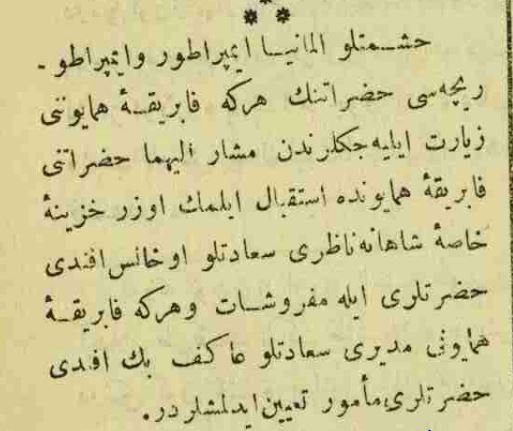 حشمتلو المانيا ايمپراطور وايمپراطو -
ريچه‌سى حضراتنك هركه فابريقۀ همايوننى
زيارت ايليه‌جكلرندن مشار اليهما حضراتنى
فابريقۀ همايونده استقبال ايلمك اوزر خزينۀ
خاصۀ شاهانه ناظرى سعادتلو اوخانس افندى
حضرتلرى ايله مفروشات وهركه فابريقۀ
همايونى مديرى سعادتلو عاكف بك افندى
حضرتلرى مأمور تعيين ايدلمشلردر.